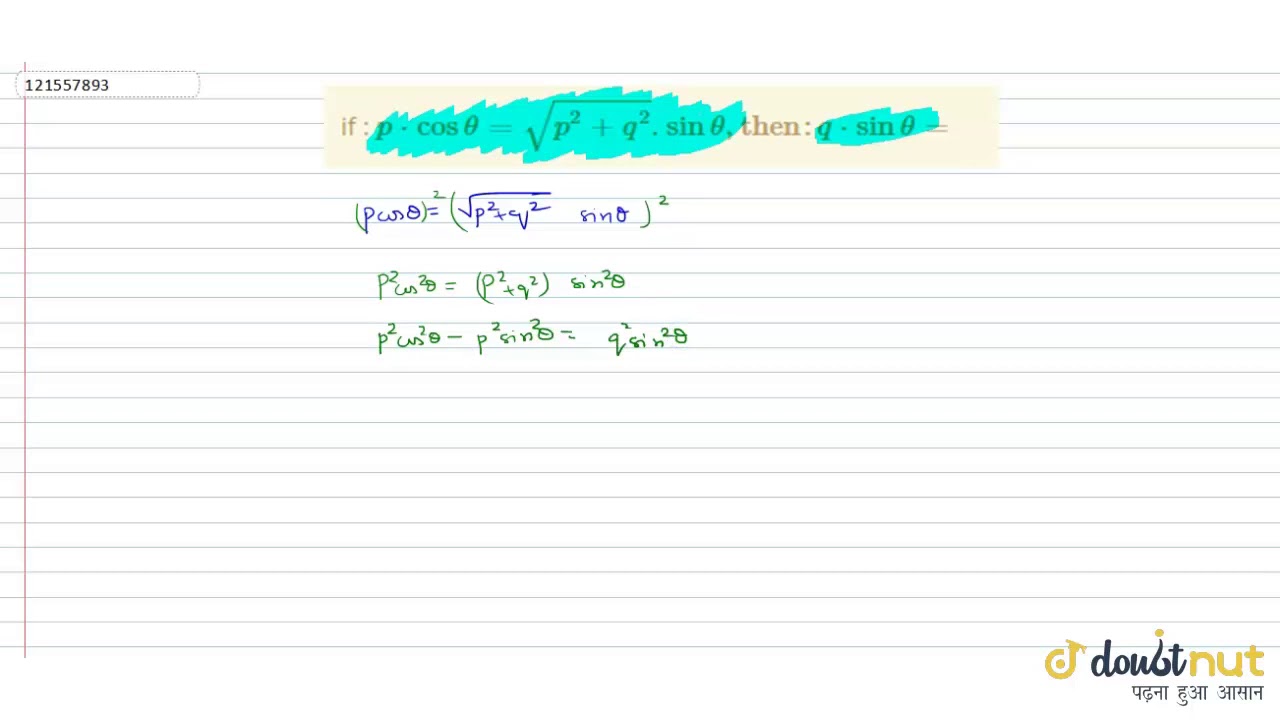 121557893
if : p · cos θ = √(p² + q²). sin θ, then : q · sin θ =
(p cos θ)² = (√(p² + q²) sin θ)²
p² cos² θ = (p² + q²) sin² θ
p² cos² θ − p² sin² θ = q² sin² θ
doubtnut
पढ़ना हुआ आसान